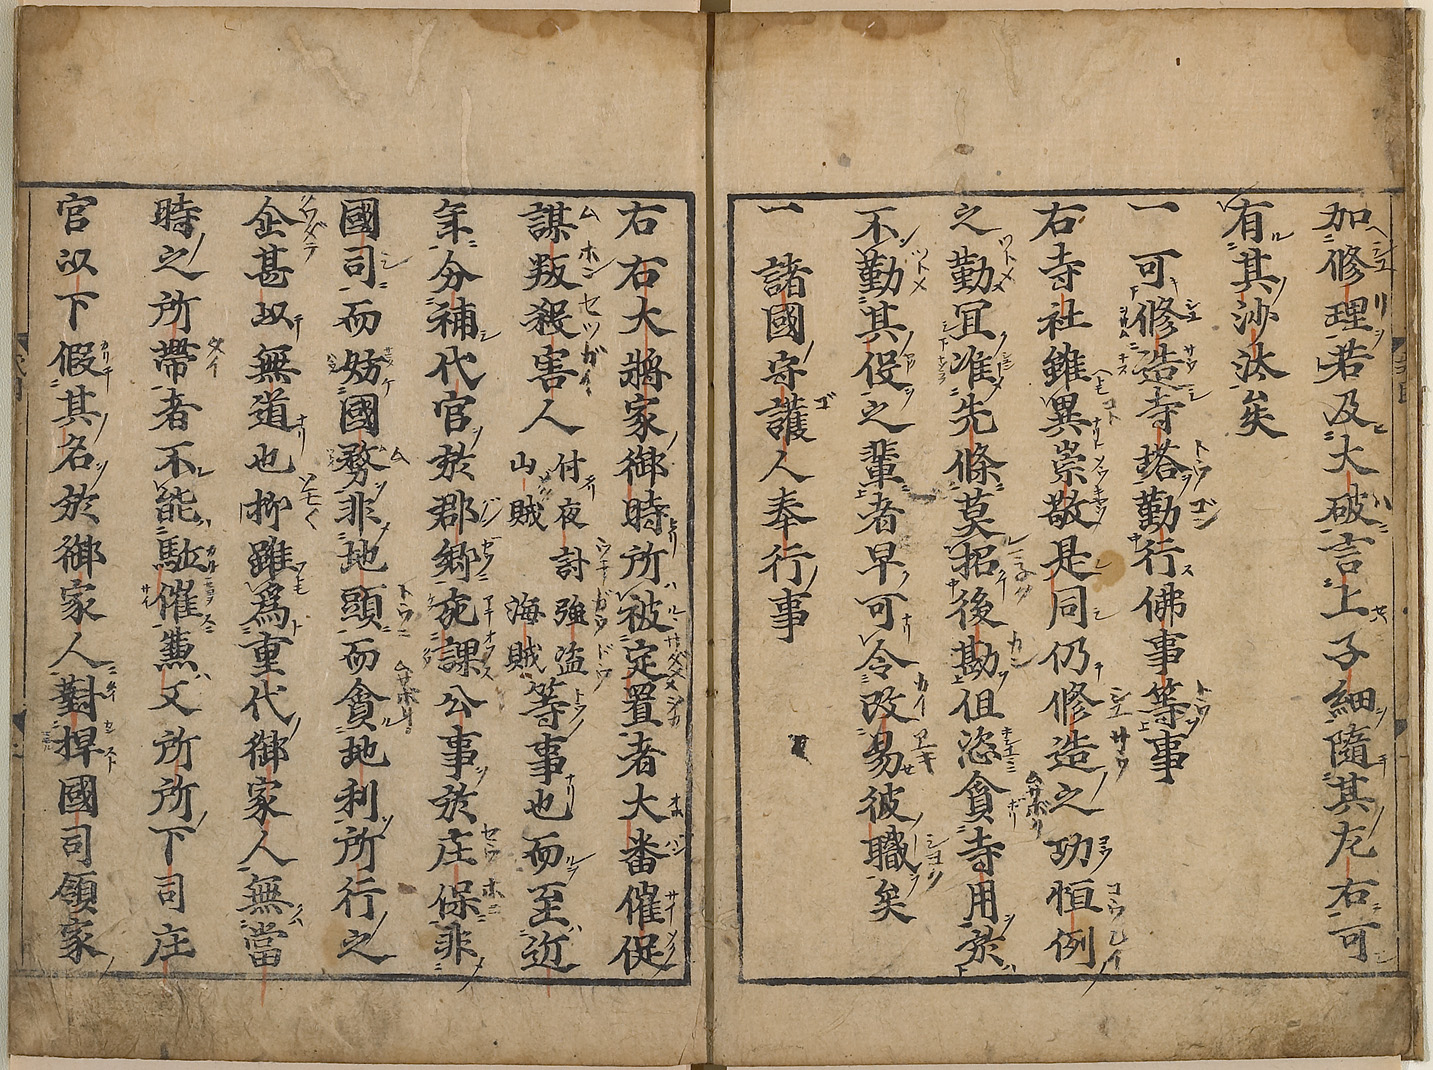 加修理若及大破言上子細隨其左右可
有其沙汰矣
一 可修造寺塔勤行佛事等事
右寺社雖異崇敬是同仍修造之功恒例
之勤冝准先條莫招後勘但恣貪寺用於
不勤其役之輩者早可令改易彼職矣
一 諸國守護人奉行事
右右大將家御時所被定置者大番催促
謀叛殺害人付夜討強盗山賊海賊等事也而至近
年分補代官於郡郷宛課公事於庄保非
國司而妨國務非地頭而貪地利所行之
企甚以無道也抑雖爲重代御家人無當
時之所帶者不能駈催兼又所所下司庄
官以下假其名於御家人對捍國司領家